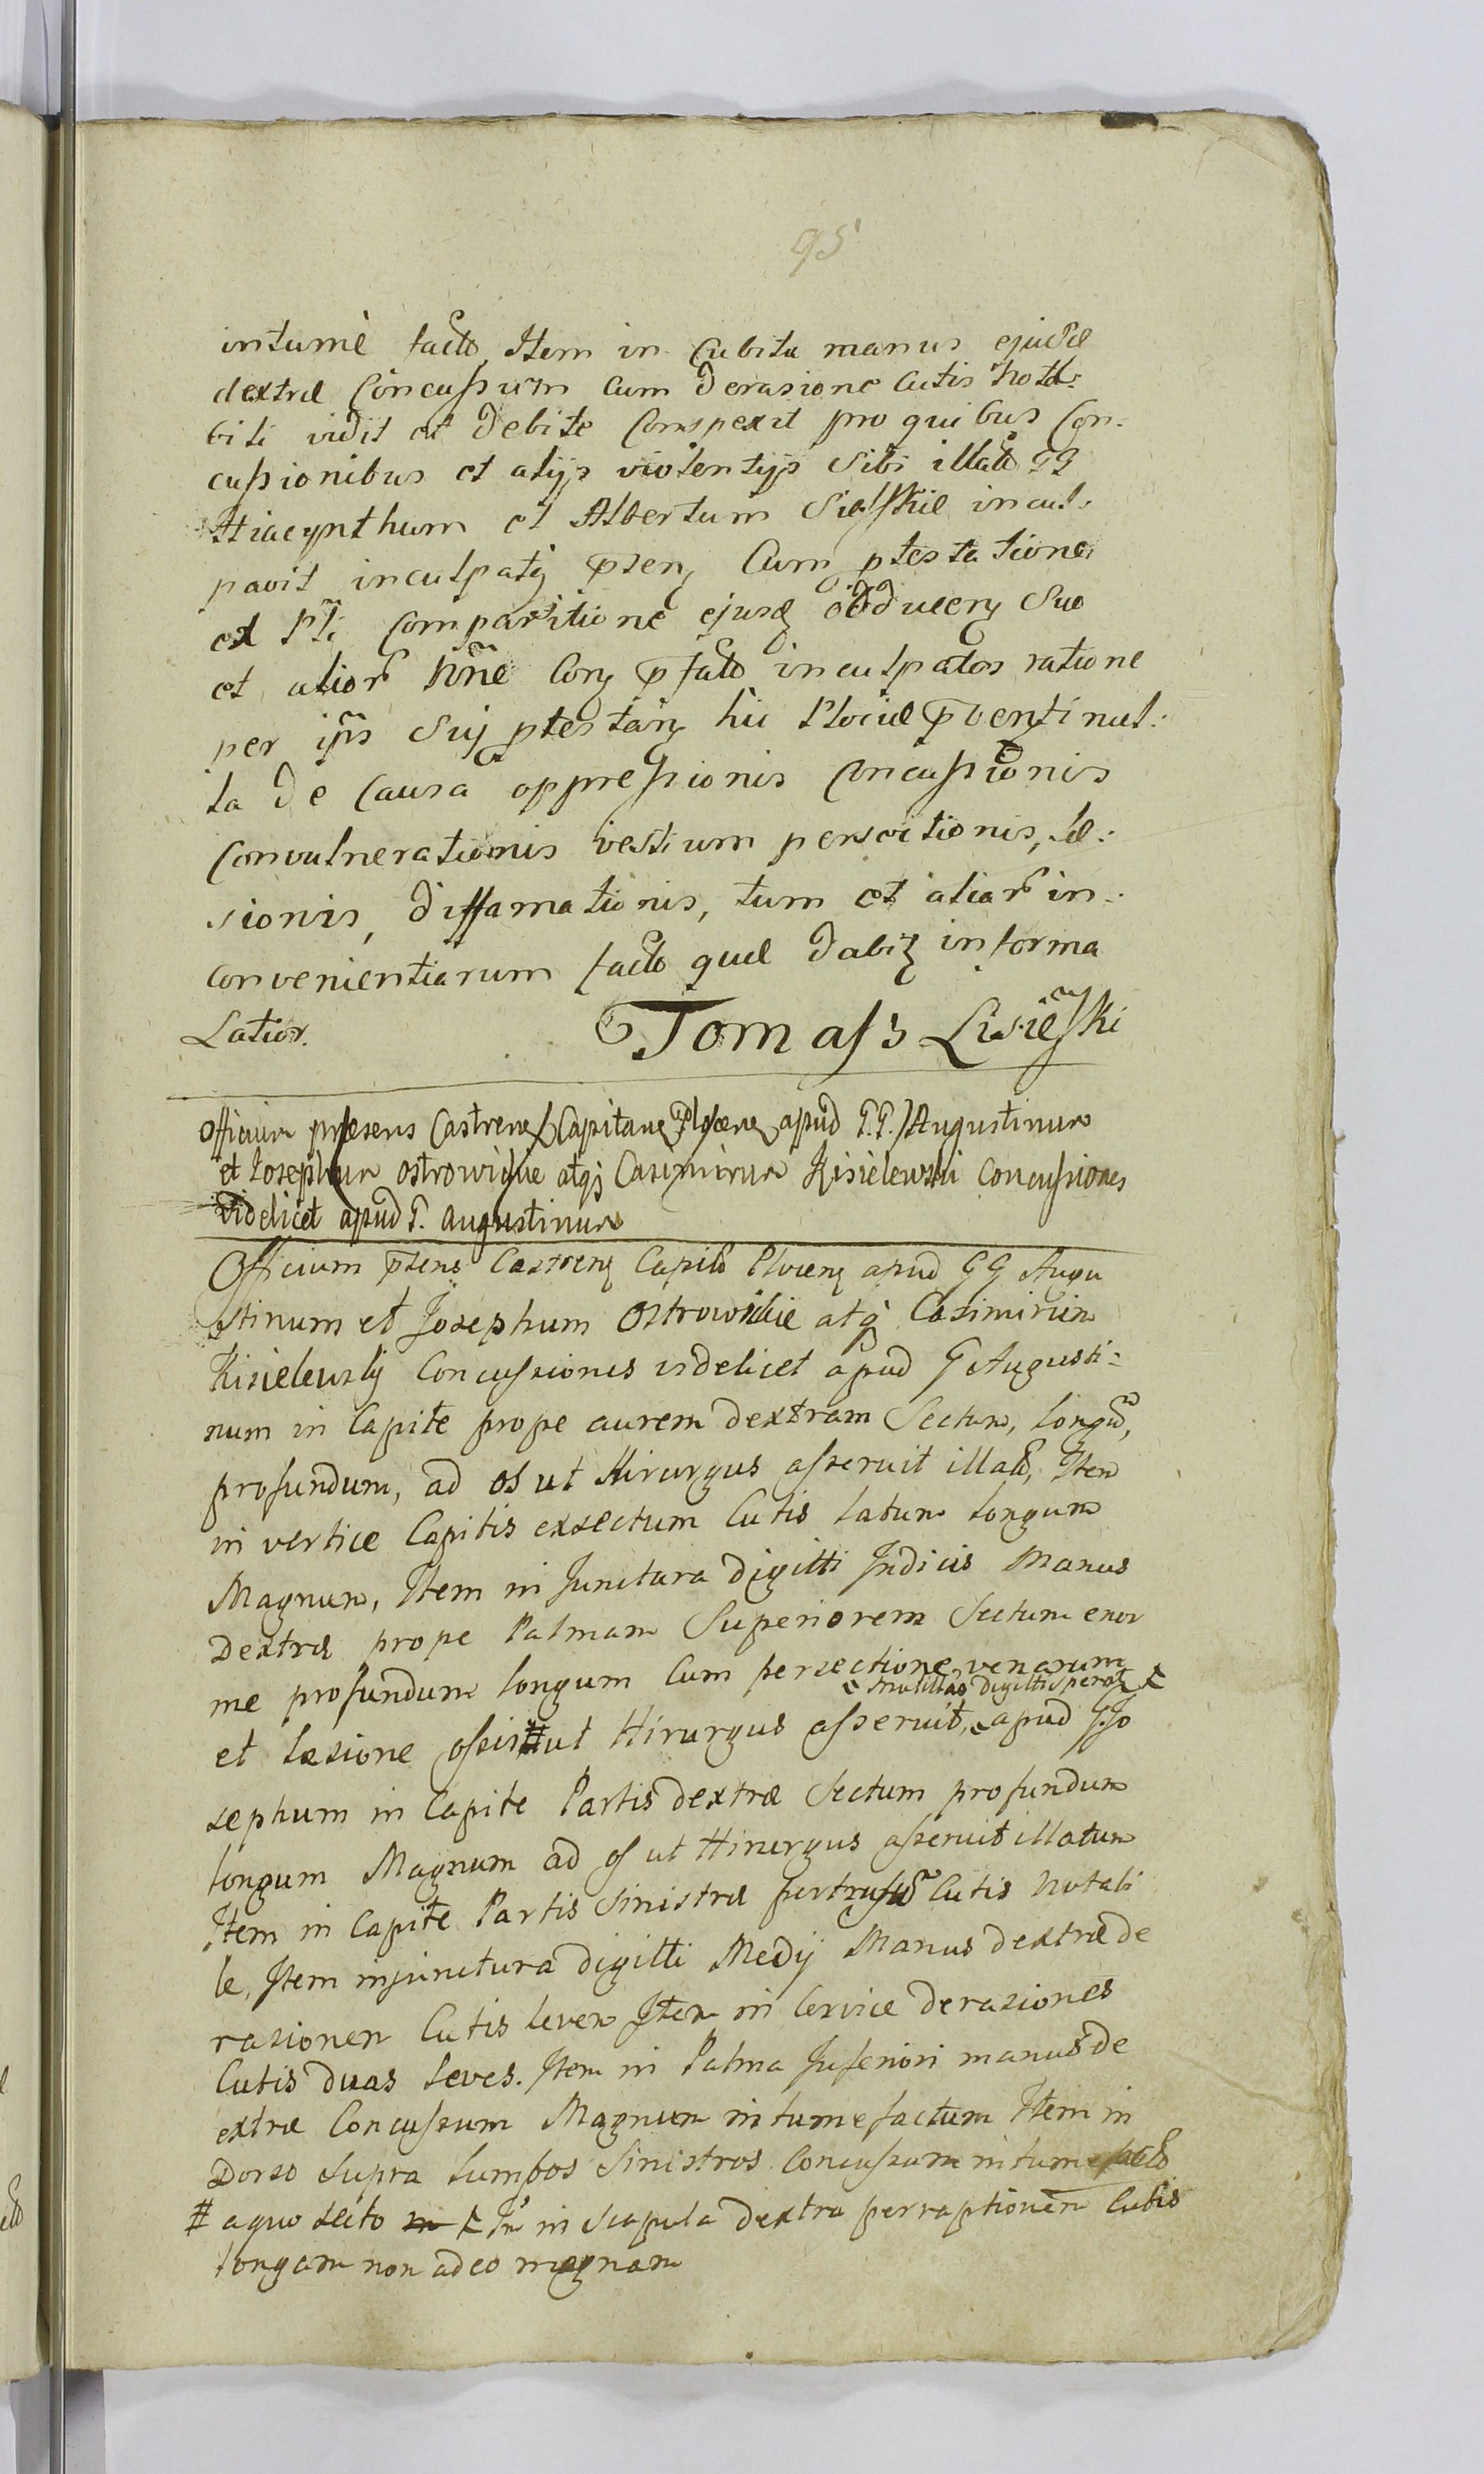 95
intumè facto Item in Cubitu manus ejusdæ
dextræ Concussum cum derasione Cutis nota:
bili vidit et debite Conspexit pro quibus Con:
cussionibus et alijs violentijs sibi illato GG
Hiacynthum et Albertum Sielskie incul:
pavit inculpatq pseng Cum ptestatione
et comparitione ejusq adducenq suo
et alior nõne Conq pfato inculpatos ratione
per ipñs suj ptestanq hic Plociæ pventi nul:
la de Causa oppressionis Concussionis
Convulnerationis vestium perscitionis, læ:
sionis, diffamationis, tum et aliar in:
convenientiarum facto quæ dabiq in forma
Latior. Tomasz Lisieski
Officium præsens Castrens Capitane Plocens apud G.G. Augustinum
et Josephum Ostrowskie atqz Casimirum Kisielewski Concussiones
videlicet apud G. Augustinum
Officium pseng Castrenq Capit Plocenq apud GG Augu
stinum et Josephum Ostrowskie atq Casimirum
Kisielewskj Concussiones videlicet apud G Augusti:
num in Capite prope aurem dextram Sectum, longũ,
profundum, ad os ut Hirurgus asseruit illatũ, Item
in vertice Capitis exsectum Cutis latum longum
Magnum, Item in Junctura digitti Indicis Manus
Dextræ prope Palmam Superiorem Sectum enor
me profundum longum Cum persectione venarum
mutillao digitti sperat
et læsione ossis # ut Hirurgus asseruit, apud G Jo
sephum in Capite Partis dextræ Sectum profundum
longum Magnum ad os ut Hirurgus asseruit illatum
Item in Capite Partis Sinistræ pertusũ Cutis Notabi
le, Item in junctura digitti Medij Manus dextræ de
rasionem Cutis levem Item in Cervice derasiones
Cutis duas leves. Item in Palma Inferiori manus de
extræ Concussum Magnum intumefactum Item in
Dorso supra lumbos Sinistros Concussum intumefacto
# aquo secto in scapula dextra perraptionem Cutis
longam non adeo magnam